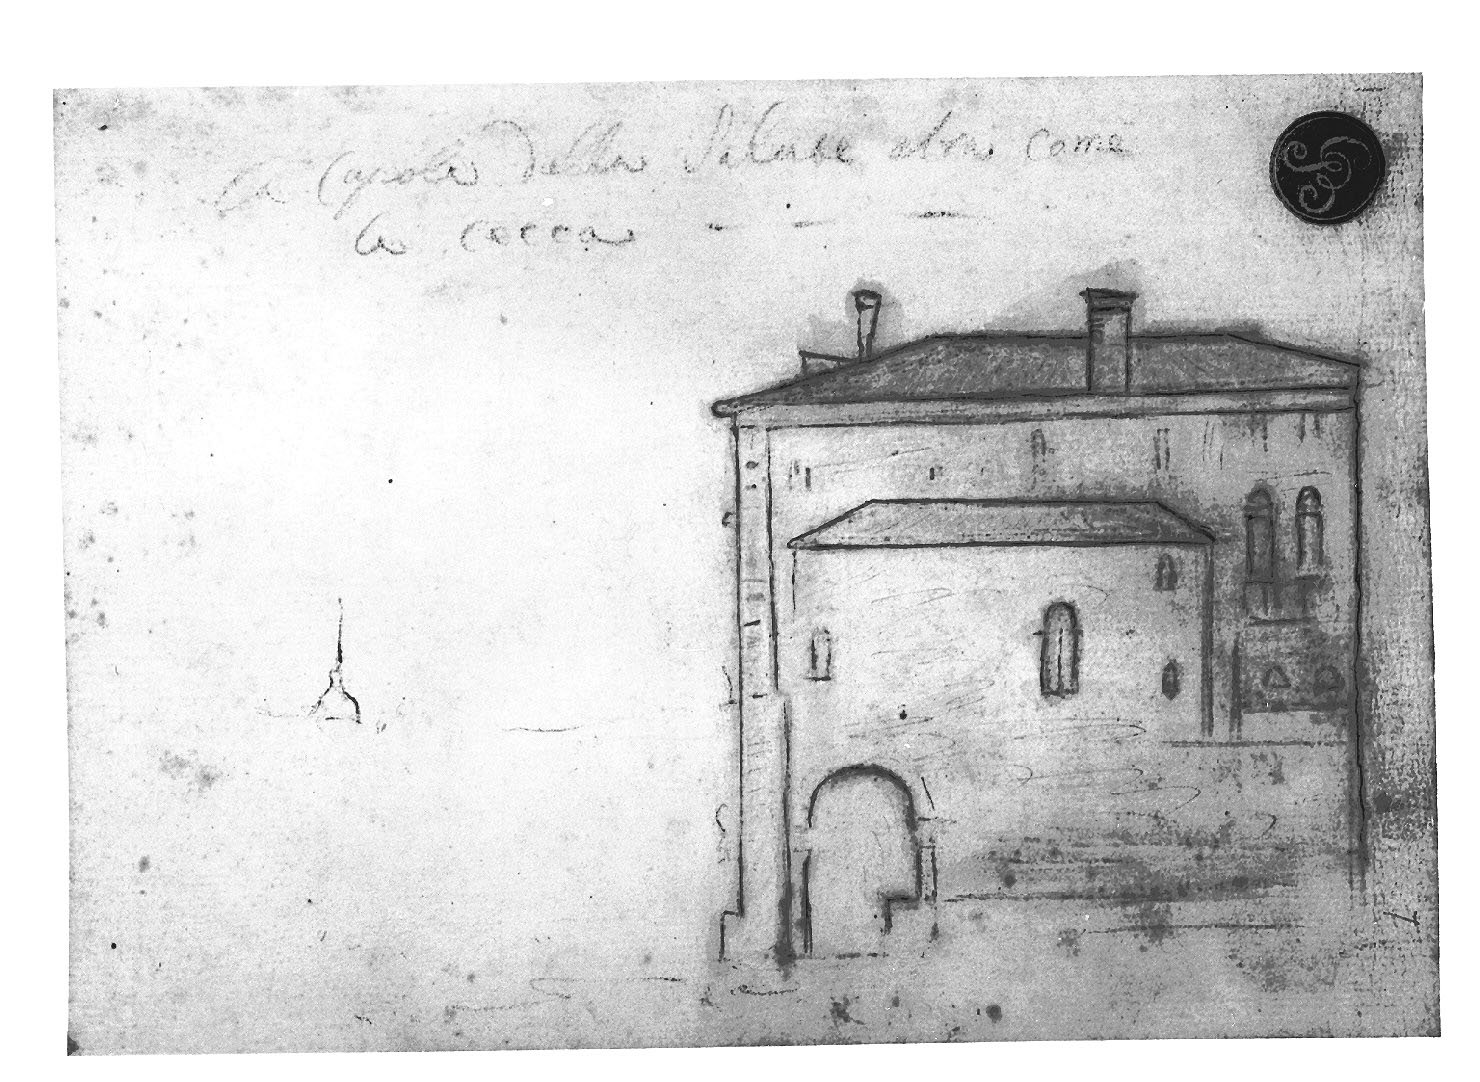 La Cupola della Salute alta come
la rocca